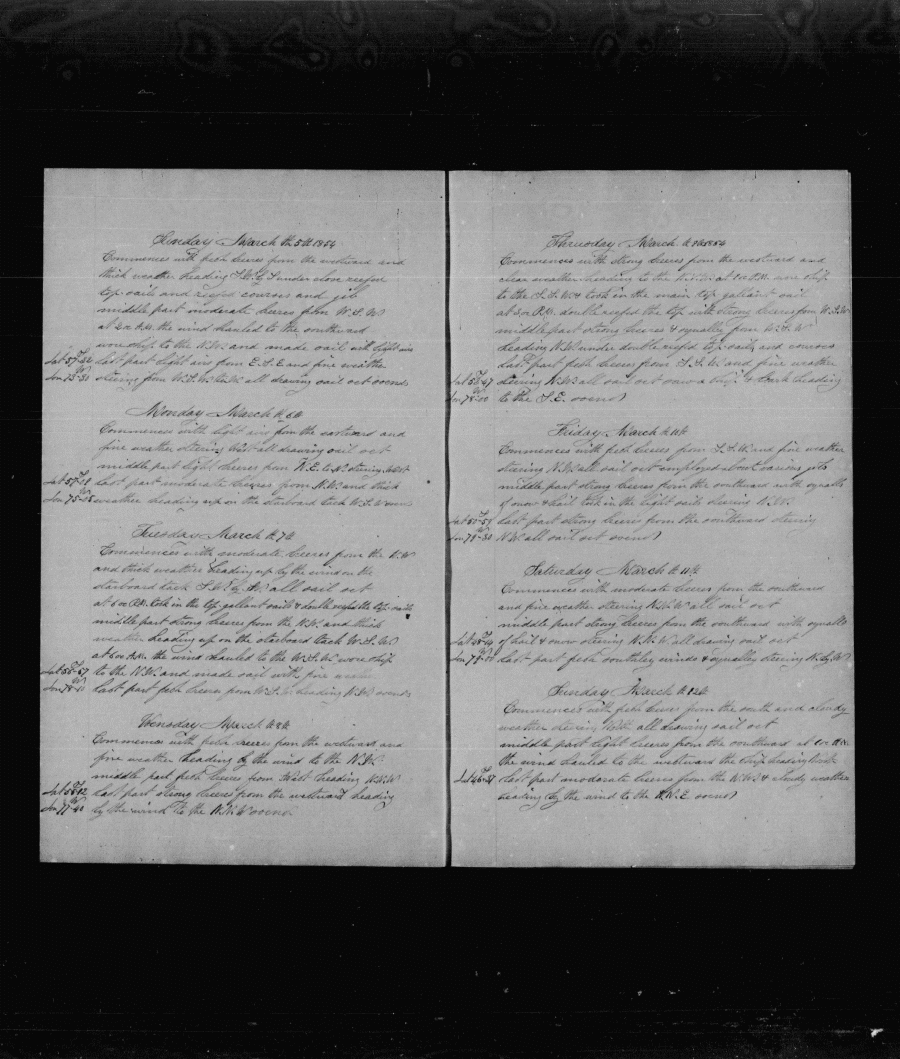 Sunday March th 5th 1854
Commences with fresh breeses from the westward and
thick weather heading S.W. by S under close reefed
top sails and reefed courses and jib
middle part moderate breeses from W.S.W
at 2 oc A.M. the wind hauled to the southward
wore ship to the N.W. and made sail with light airs
Lat 57-32 last part light airs from E.S.E and fine weather
Lon 75-31 steering from W.S.W. to W. all drawing sail set so ends
Monday March th 6th
Commences with light airs from the eastward and
fine weather steering West all drawing sail set
middle part light breeses from N.E. to N. steering West
Lat 57-18 last part moderate breeses from N.W. and thick
weather heading up on the starboard tack W.S.W so ends
Tuesday March th 7th
Commences with moderate breeses from the N.W
and thick weather heading up by the wind on the
starboard tack all sail set
at 6 oc P.M. took in the top gallant sails & double reefed the top sails
middle part strong breeses from the N.W. and thick
weather heading up on the starboard tack W.S.W
at 6 oc A.M. the wind hauled to the W.S.W. wore ship
Lat 58-57 to the N.W. and made sail with fine weather
Lon 78-11 last part fresh breeses from W.S.W heading N.W so ends
Wensday March th 8th
Commences with fresh breeses from the westward and
fine weather heading by the wind to the N.W.
middle part fresh breeses from West heading N.N.W
Lat 58-02 last part strong breeses from the westward heading
Lon 77-41 by the wind to the N.N.W so ends
Thursday March th 9th 1854
Commences with strong breeses from the westward and
clear weather heading to the at oc P.M. wore ship
to the S.S.W & took in the main top gallant sail
at 5 oc P.M. double reefed the top sails strong breeses from W.S.W
middle part strong breeses & squalls from W.S.W
heading N.W under double reefed top sails and courses
last part fresh breeses from S.S.W and fine weather
Lat 56-47 steering N.W. all sail set saw a ship & bark heading
Lon 78-00 to the S.E. so ends
Friday March th 10th
Commences with fresh breeses from S.S.W. and fine weather
steering N.W. all sail set employed about various jobs
middle part strong breeses from the southward with squalls
of snow & hail took in the light sails steering N.W.
last part strong breeses from the southward steering
N.W all sail set so ends
Saturday March th 11th
Commences with moderate breeses from the southward
and fine weather steering N.N.W all sail set
middle part strong breeses from the southward with squalls
of hail & snow steering N.N.W. all drawing sail set
last part fresh southerly winds & squalley steering N. by W
Sunday March th 12th
Commences with fresh breeses from the south and cloudy
weather steering North all drawing sail set
middle part light breeses from the southward at 6 oc A.M.
the wind hauled to the westward the ship heading North
Lat 46-37 last part moderate breeses from the N.W. & cloudy weather
heading by the wind to the N.N.E. so ends